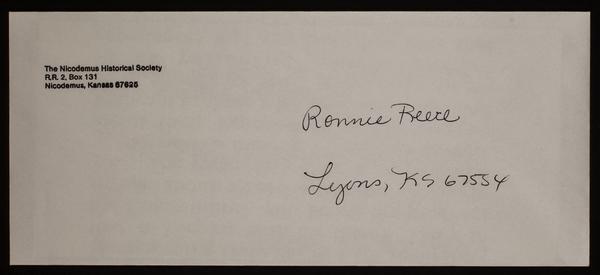 The Nicodemus Historical Society
R.R. 2, Box 131
Nicodemus, Kansas 67625
Ronnie Reece
Lyons, KS 67554